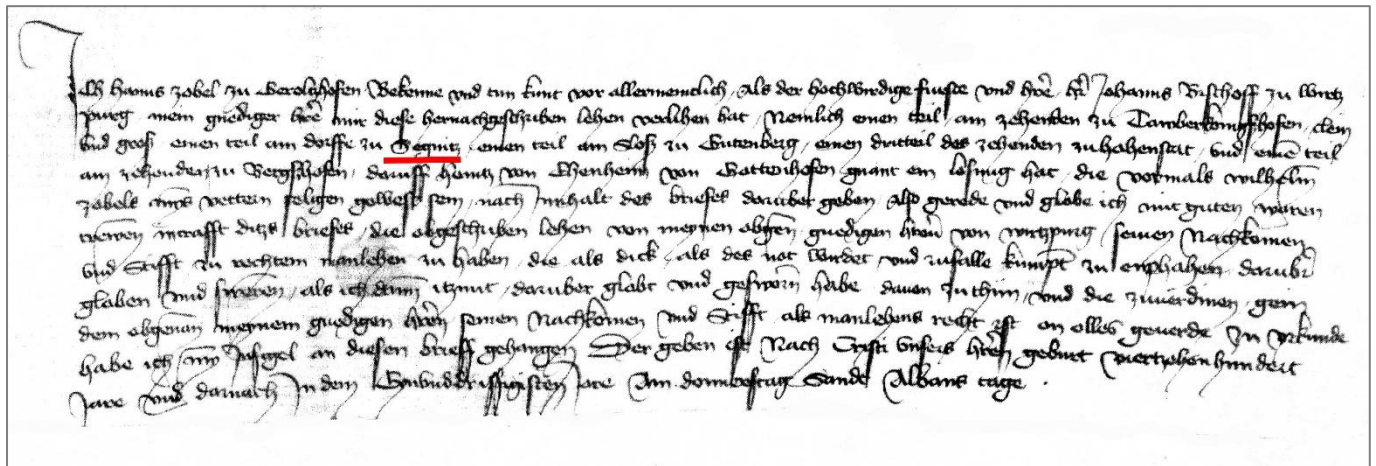 Ich Hanns Zobel zu Gerolczhofen Bekenne vnd tun kunt vor allermeniclich, Als der hochwirdige furste vnd here, her Johanns Bischoff zu Wirtz
purg mein gnediger here mir diese hernachgeschriben lehen verlihen hat, Nemlich einen teil am zehenden zu Tauberkonigßhofen, clein
vnd groß, einen teil am dorffe zu Segnitz, einen teil am Sloß zu Gutenberg, einen dritteil des zehenden zu hohenstat, vnd einē teil
am zehenden zu Bergßhofen, daruff Heintz von Ehenheim von gnant ein losung hat, die vormals wilhelm
Zobels myns vettern seligen gewest sein, nach Innhalt des briefes daruber geben Also gerede vnd globe ich mit guten waren
trewen incrafft ditzs briefes, die obgeschriben lehen von meynen obgen gnedigen heren von wirtzpurg, seinen Nachkomen
vnd Stifft zu rechtem manlehen zu haben, die als dick als des not wurdet vnd zufalle kumpt zu enphahen, darubir
globen vnd sweren, als ich dann itzunt, daruber globt vnd gesworn habe dauon zuthun, vnd die zuuerdinen, gein
dem obgenan meynem gnedigen heren seinen Nachkomen vnd Stifft als manlehens recht ist on alles geuerde In vrkunde
habe ich myn Insigel an diesen brieff gehangen Der geben ist Nach Cristi vnsers heren geburt viertzehenhundert
Jare vnd darnach In dem Jare Am donrestag Sande Albans tage.